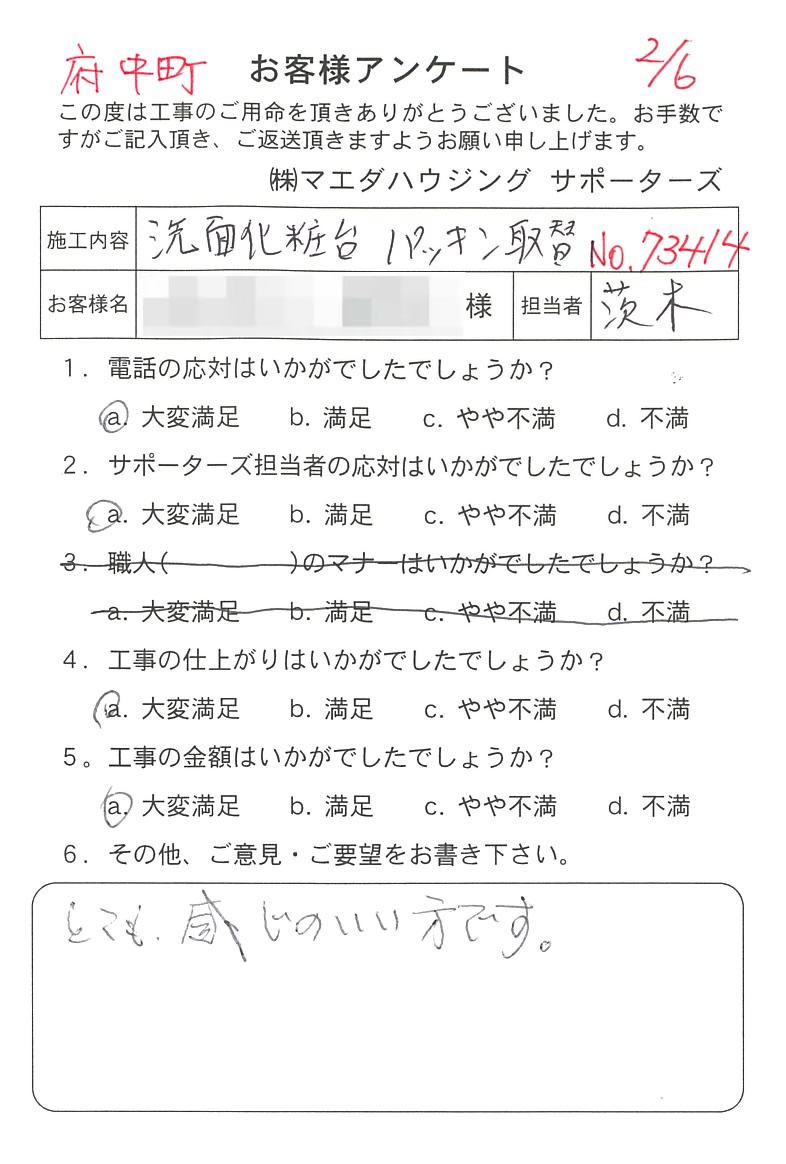 府中町 お客様アンケート 2/6
この度は工事のご用命を頂きありがとうございました。お手数で
すがご記入頂き、ご返送頂きますようお願い申し上げます。
㈱マエダハウジング サポーターズ
施工内容 洗面化粧台 パッキン取替 No.73414
お客様名 様 担当者 茨木
1. 電話の応対はいかがでしたでしょうか?
a. 大変満足 b. 満足 c. やや不満 d. 不満
2. サポーターズ担当者の応対はいかがでしたでしょうか?
a. 大変満足 b. 満足 c. やや不満 d. 不満
3. 職人( )のマナーはいかがでしたでしょうか?
a. 大変満足 b. 満足 c. やや不満 d. 不満
4. 工事の仕上がりはいかがでしたでしょうか?
a. 大変満足 b. 満足 c. やや不満 d. 不満
5。工事の金額はいかがでしたでしょうか?
a. 大変満足 b. 満足 c. やや不満 d. 不満
6. その他、ご意見・ご要望をお書き下さい。
とても、感じのいい方です。